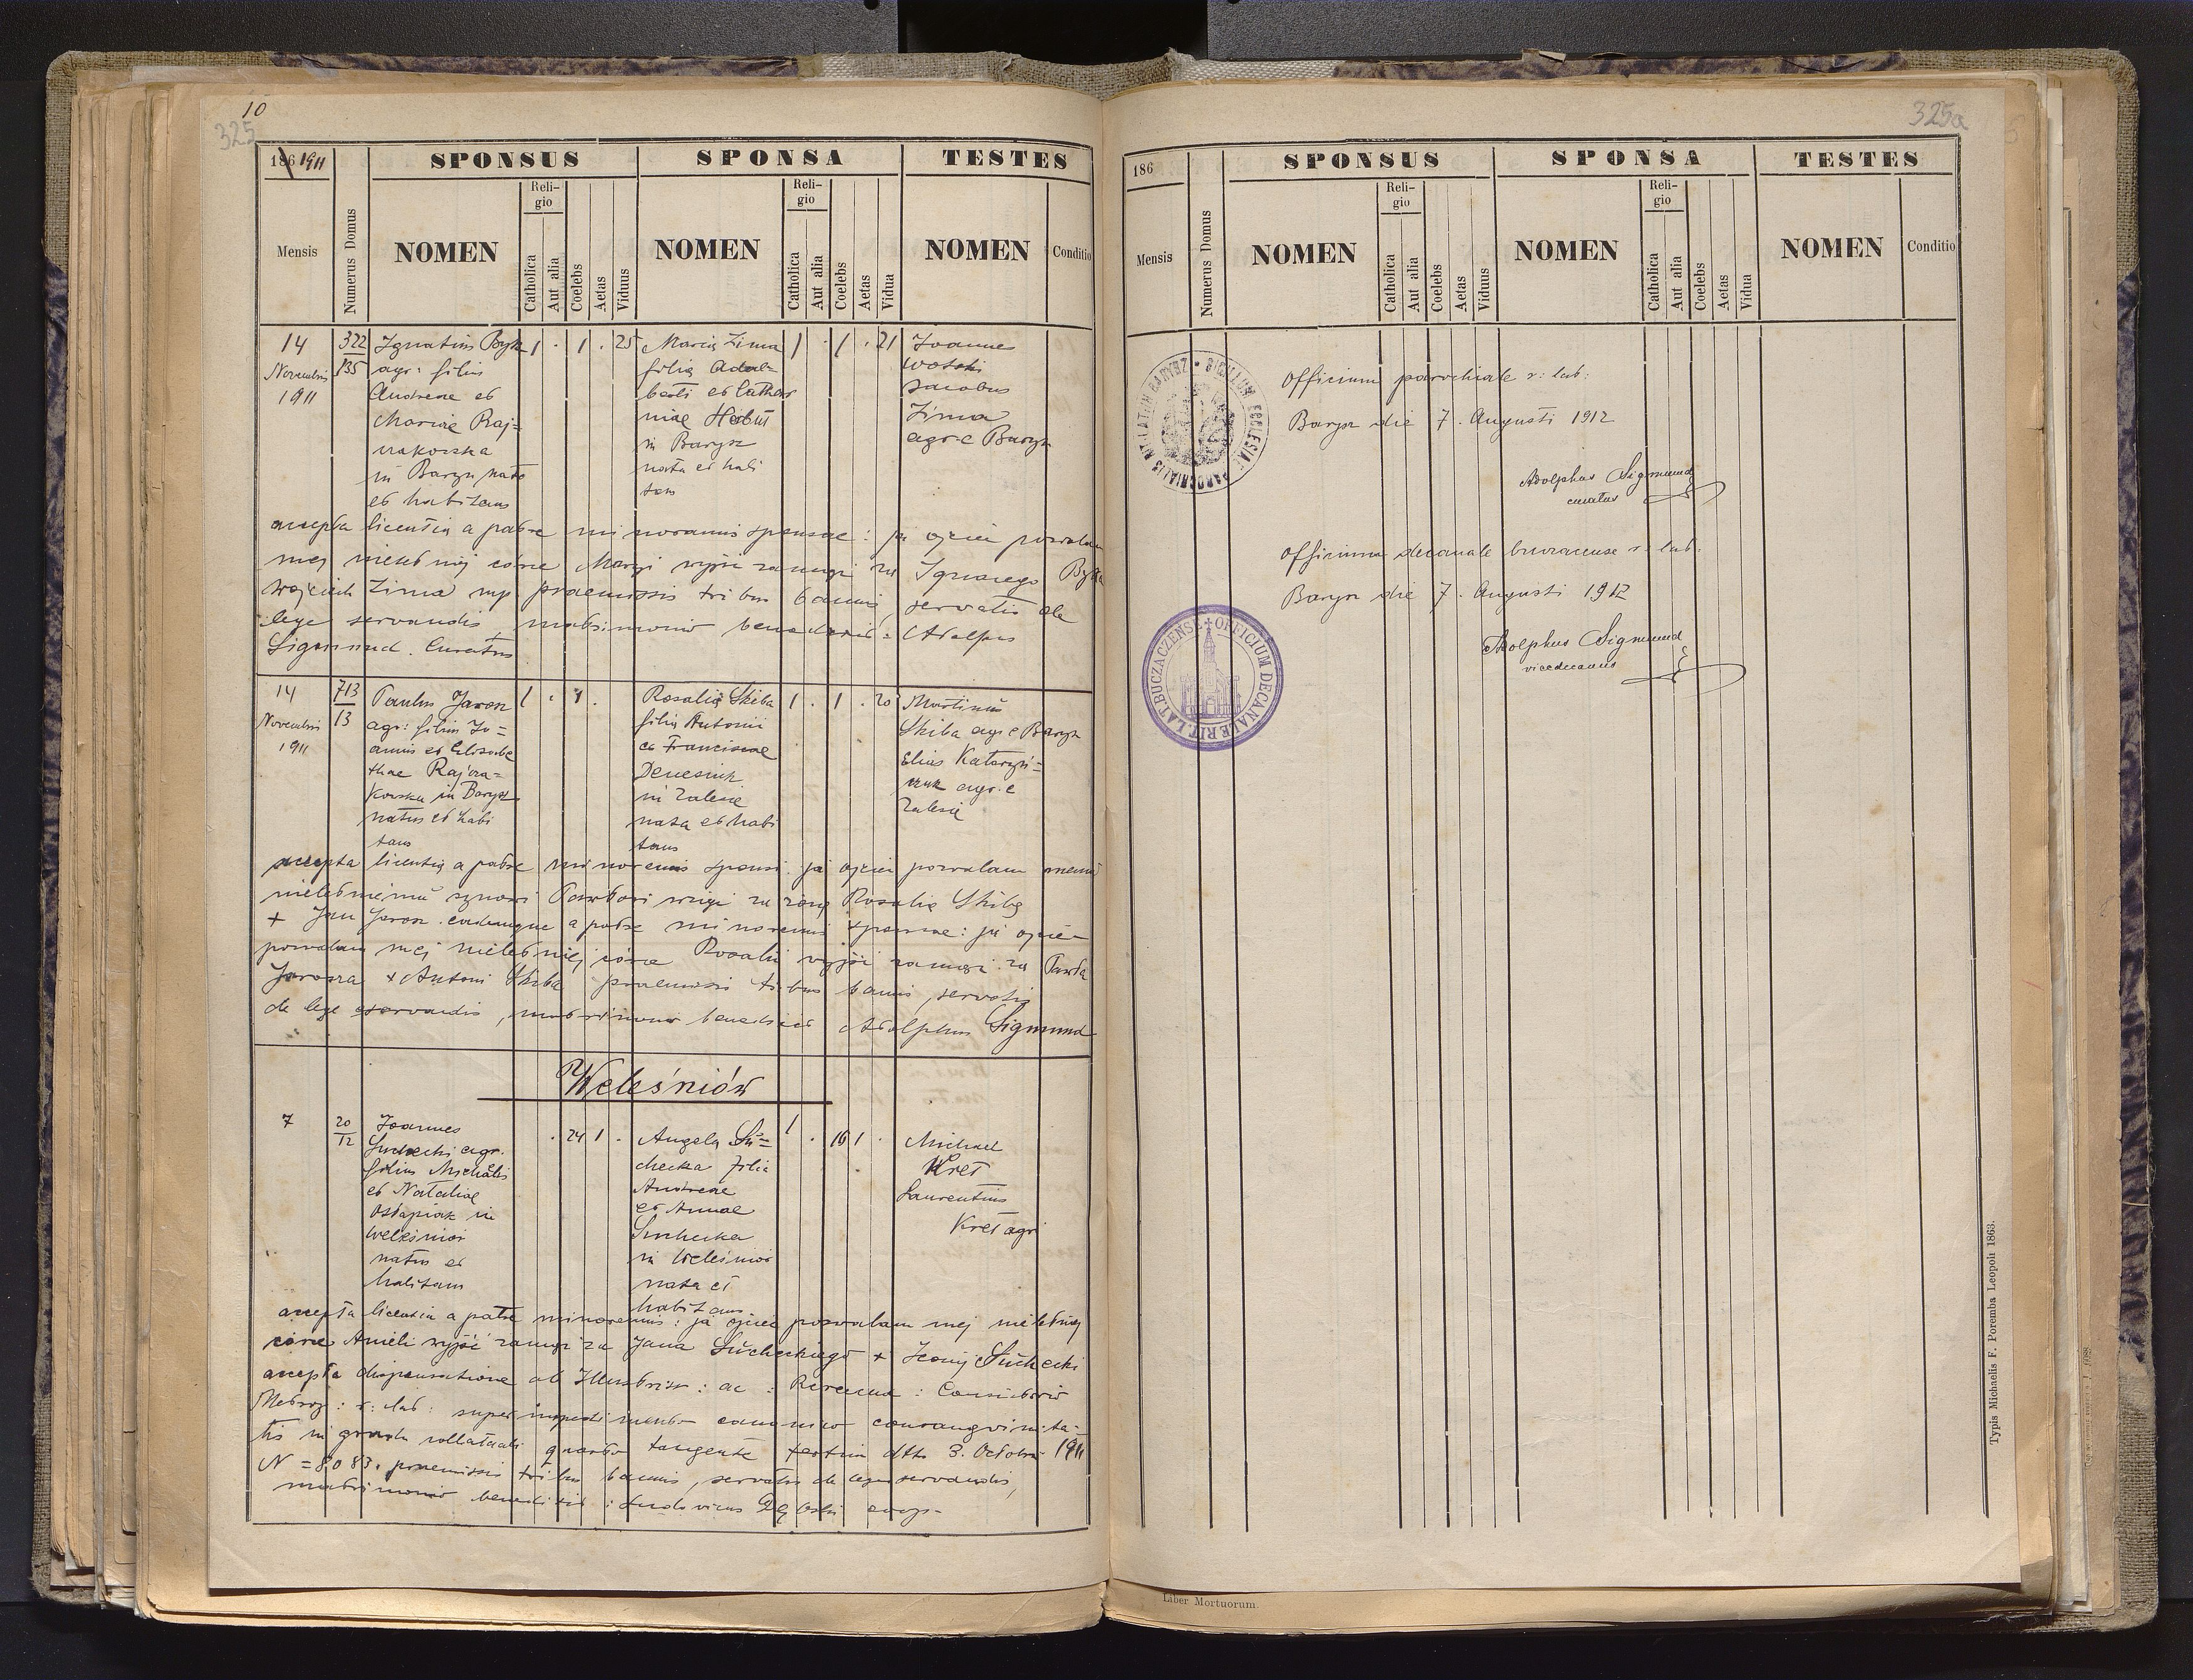 10
325
186 1911
SPONSUS
SPONSA
TESTES
Mensis
Numerus Domus
NOMEN
Religio
Catholica
Aut alia
Coelebs
Aetas
Viduus
NOMEN
Religio
Catholica
Aut alia
Coelebs
Aetas
Vidua
NOMEN
Conditio
14
Novembris
1911
322
135
Ignatius Byk
agr: filius
Andreae et
Mariae Raj=
in Barysz
et habitans
1 . 1 . 25
Maria Zima
filia Adal=
berti et Catha
in Barysz
nata et habi
tans
1 . 1 . 21
Joannes
Jacobus
Zima
agr. e Barysz
accepta licentia a patre minorennis sponsae: ja ojciec pozwalam
mej nieletniej córce Maryi wyjść zamąż za Ignacego Byka
Wojciech Zima mp. praemissis tribus bannis, servatis de
lege servandis matrimonio benedixit: Adolphus
Sigmund. Curatus
14
Novembris
1911
713
13
Paulus Jarosz
agr: filius Jo=
annis et Elisabe
thae Rajza=
kowska in Barysz
natus et habi
tans
1 . 1 .
Rosalia Skiba
filia Antonii
et Franciscae
in Zalesie
nata et habi
tans
1 . 1 . 20
Martinus
Skiba agr e Barysz
Elias Kataryń=
czuk agr. e
Zalesie
accepta licentia a patre minorennis sponsi: ja ojciec pozwalam memu
nieletniemu synowi Pawłowi wziąć za żonę Rosalię Skibę
+ Jan Jarosz. eademque a patre minorennis sponsae: ja ojciec
pozwalam mej nieletniej córce Rosalii wyjść zamąż za Pawła
Jarosza + Antoni Skiba praemissis tribus bannis, servatis
de lege servandis, matrimonio benedixit Adolphus Sigmund
Weleśniów
7
20
12
Joannes
Suchecki agr.
filius Michaelis
et Nataliae
Ostapiak in
Weleśniów
natus et
habitans
. 24 1 .
Angela Su=
checka filia
Andreae
et Annae
Suchecka
in Weleśniów
nata et
habitans
1 . 16 1 .
Michael
Kret
Laurentius
Kret agr
accepta licentia a patre minorennis: ja ojciec pozwalam mej nieletniej
córce Anieli wyjść zamąż za Jana Sucheckiego + Jędrzej Suchecki
accepta dispensatione ab Illustriss: ac: Reverend: Consistorio
Metrop: r: lat: super impedimento canonico consanguinita=
tis in gradu collaterali quarto tangente tertium dtto 3. Octobris 1911
N = 8083. praemissis tribus bannis, servatis de lege servandis,
matrimonio benedixit: Ludovicus
325a
186
SPONSUS
SPONSA
TESTES
Mensis
Numerus Domus
NOMEN
Religio
Catholica
Aut alia
Coelebs
Aetas
Viduus
NOMEN
Religio
Catholica
Aut alia
Coelebs
Aetas
Vidua
NOMEN
Conditio
Officium parochiale r: lat:
Barysz die 7. Augusti 1912
Adolphus Sigmund
curatus
Officium decanale buczacense r: lat:
Barysz die 7. Augusti 1912
Adolphus Sigmund
vicedecanus
OFFICIUM DECANALE RIT. LAT. BUCZACZENSE
Typis Michaelis F. Poremba Leopoli 1863.
Liber Mortuorum.